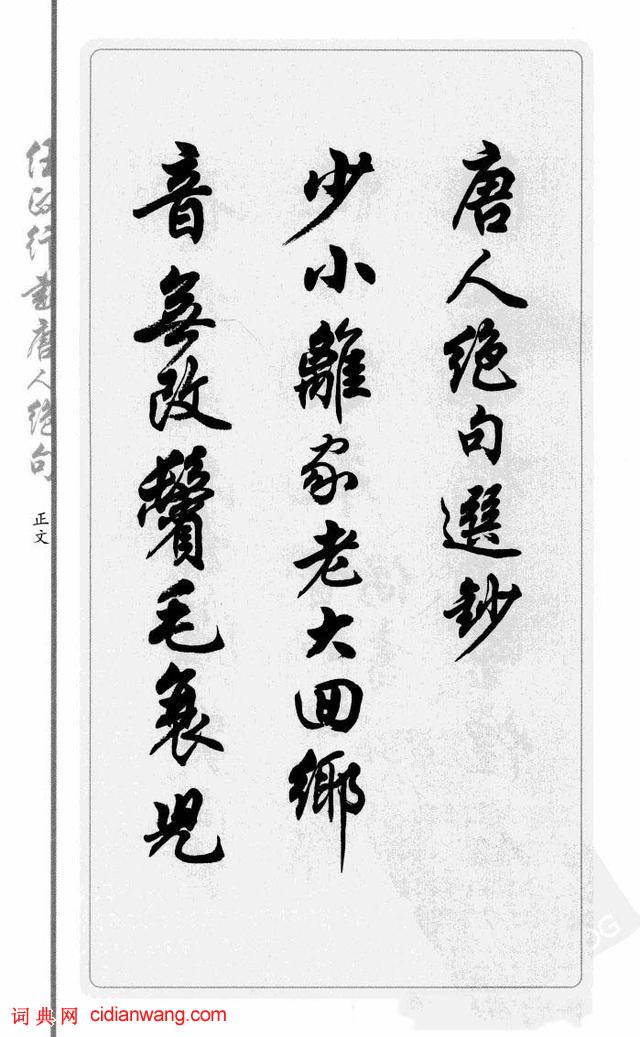 唐人绝句選鈔
少小離家老大回鄉
音無改鬢毛衰兒
任政行書唐人绝句
正文
词典网 cidianwang.com